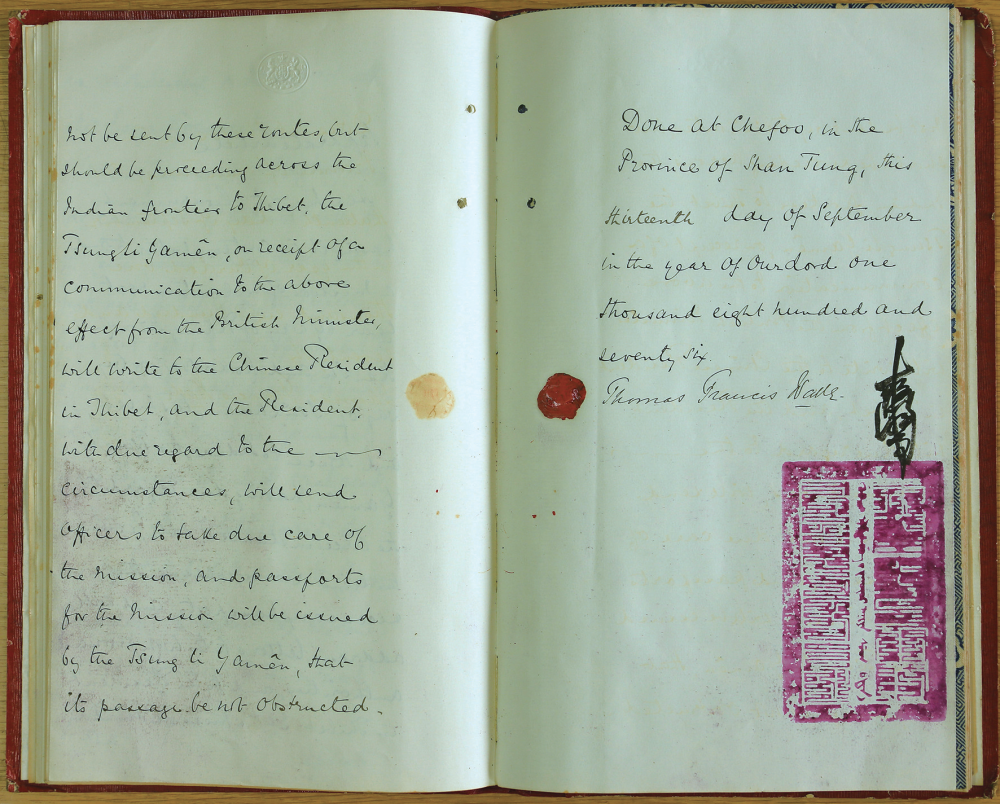 not be sent by these routes, but
should be proceeding across the
Indian frontier to Thibet, the
Tsungli Yamên, on receipt of a
communication to the above
effect from the British Minister,
will write to the Chinese Resident
in Thibet, and the Resident,
with due regard to the
circumstances, will send
officers to take due care of
the Mission, and passports
for the Mission will be issued
by the Tsung li Yamên, that
its passage be not obstructed.
Done at Chefoo, in the
Province of Shan Tung, this
thirteenth day of September
in the year of Our Lord one
thousand eight hundred and
seventy six.
Thomas Francis Wade.